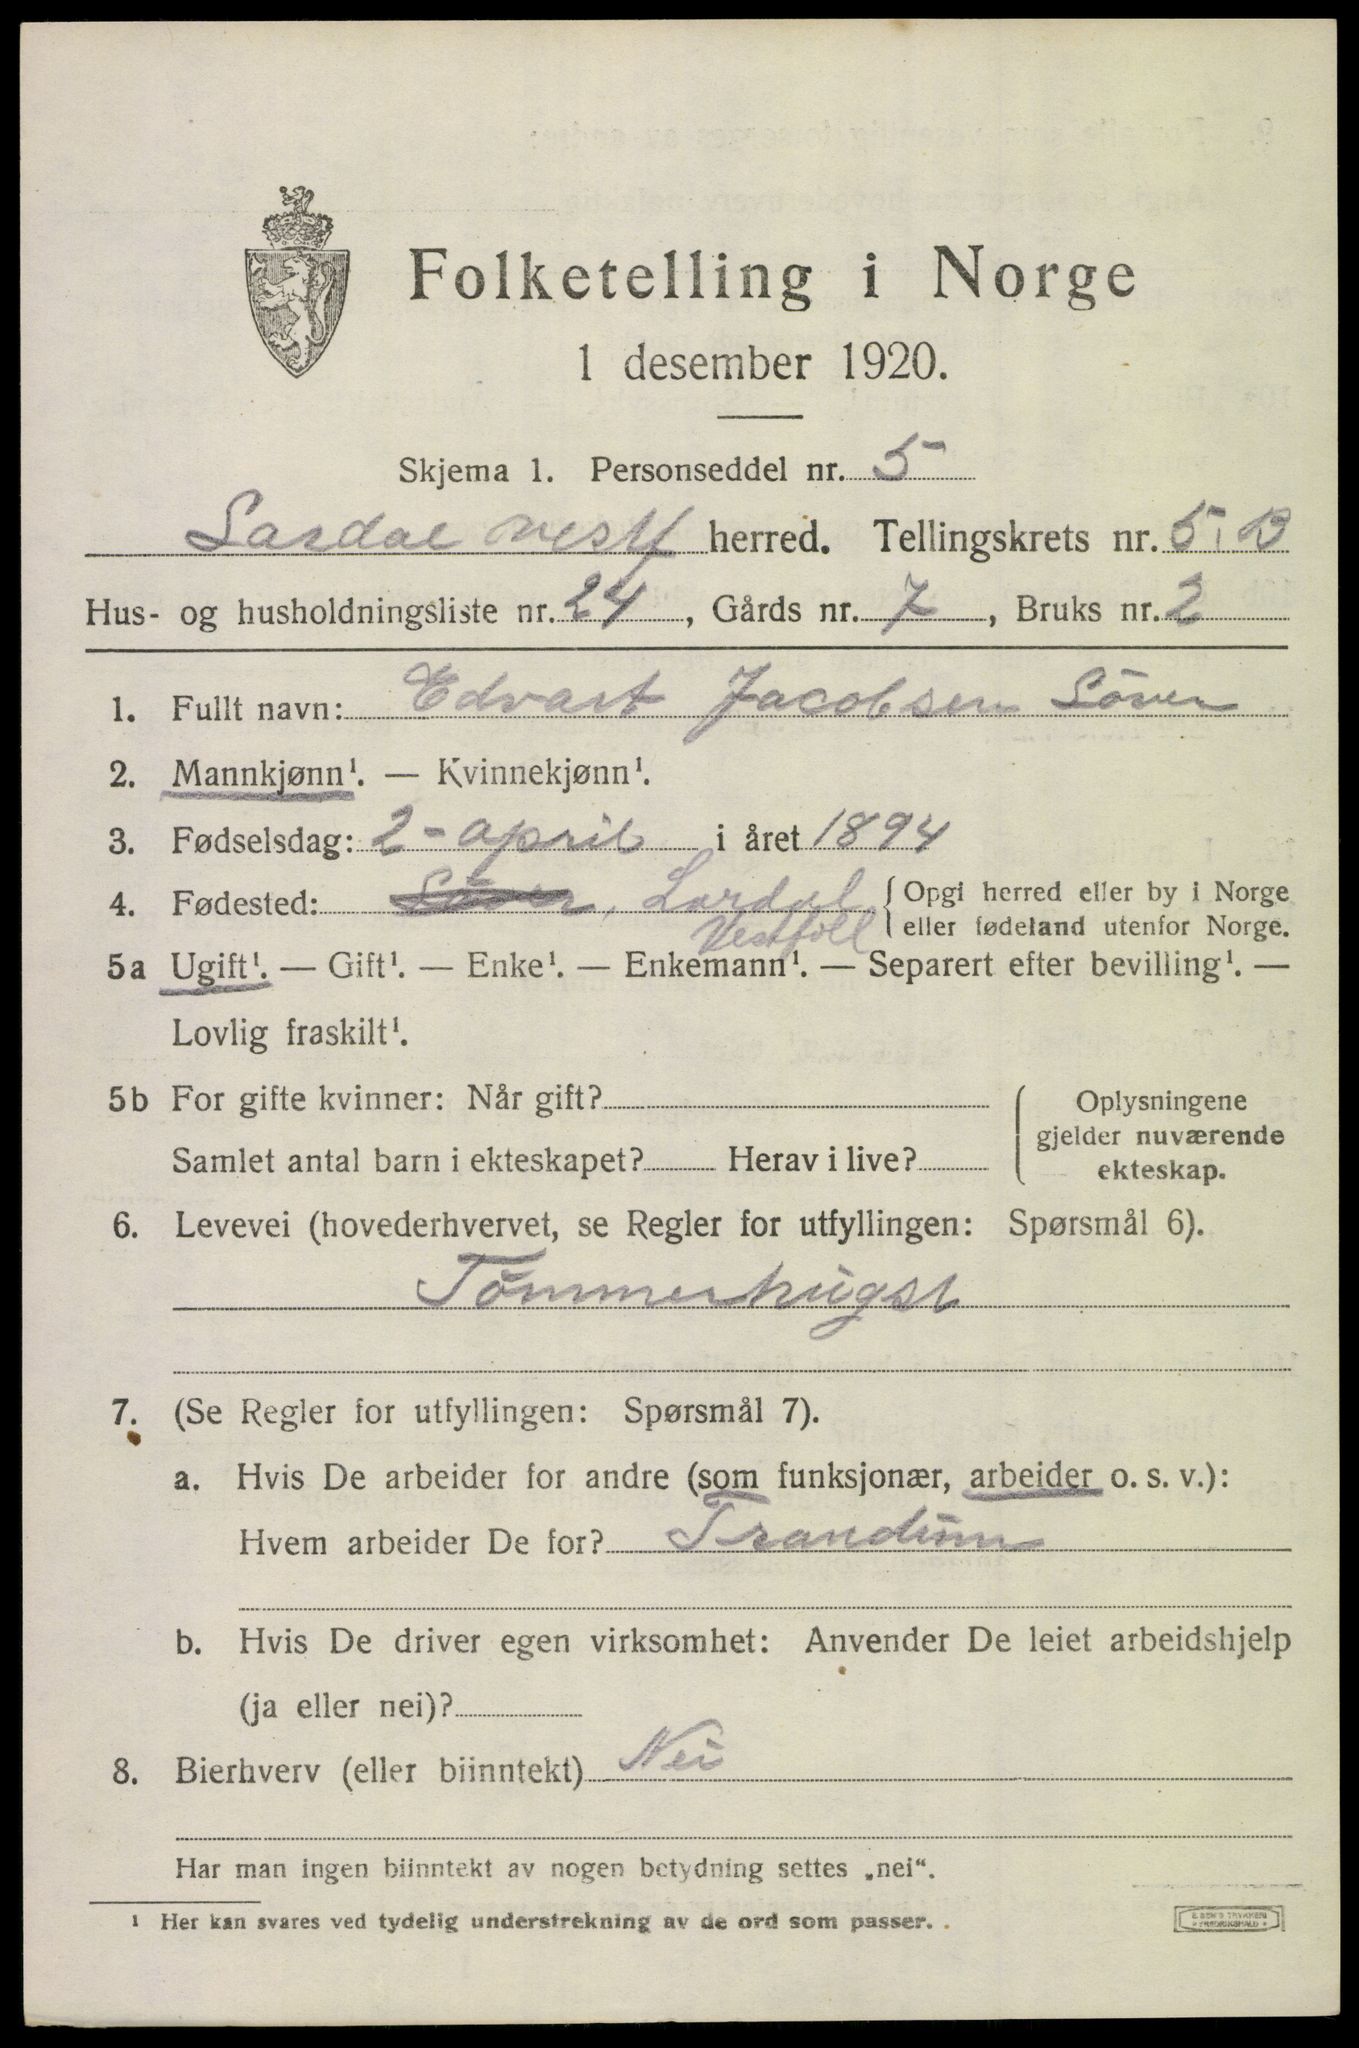 Folketelling i Norge
1 desember 1920.
Skjema 1. Personseddel nr. 5
Lardal vestf herred. Tellingskrets nr. 5. B
Hus- og husholdningsliste nr. 24, Gårds nr. 7, Bruks nr. 2
1. Fullt navn: Edvart Jacobsen Löver
2. Mannkjønn¹. — Kvinnekjønn¹.
3. Fødselsdag: 2 - april i året 1894
4. Fødested: Löver, Lardal { Opgi herred eller by i Norge
Vestfoll eller fødeland utenfor Norge.
5a Ugift¹. — Gift¹. — Enke¹. — Enkemann¹. — Separert efter bevilling¹. —
Lovlig fraskilt¹.
5b For gifte kvinner: Når gift? Oplysningene
gjelder nuværende
Samlet antal barn i ekteskapet? Herav i live? ekteskap.
6. Levevei (hovederhvervet, se Regler for utfyllingen: Spørsmål 6).
Tömmerhugst
7. (Se Regler for utfyllingen: Spørsmål 7).
a. Hvis De arbeider for andre (som funksjonær, arbeider o. s. v.):
Hvem arbeider De for?
b. Hvis De driver egen virksomhet: Anvender De leiet arbeidshjelp
(ja eller nei)?
8. Bierhverv (eller biinntekt) Nei
Har man ingen biinntekt av nogen betydning settes „nei“.
¹ Her kan svares ved tydelig understrekning av de ord som passer.